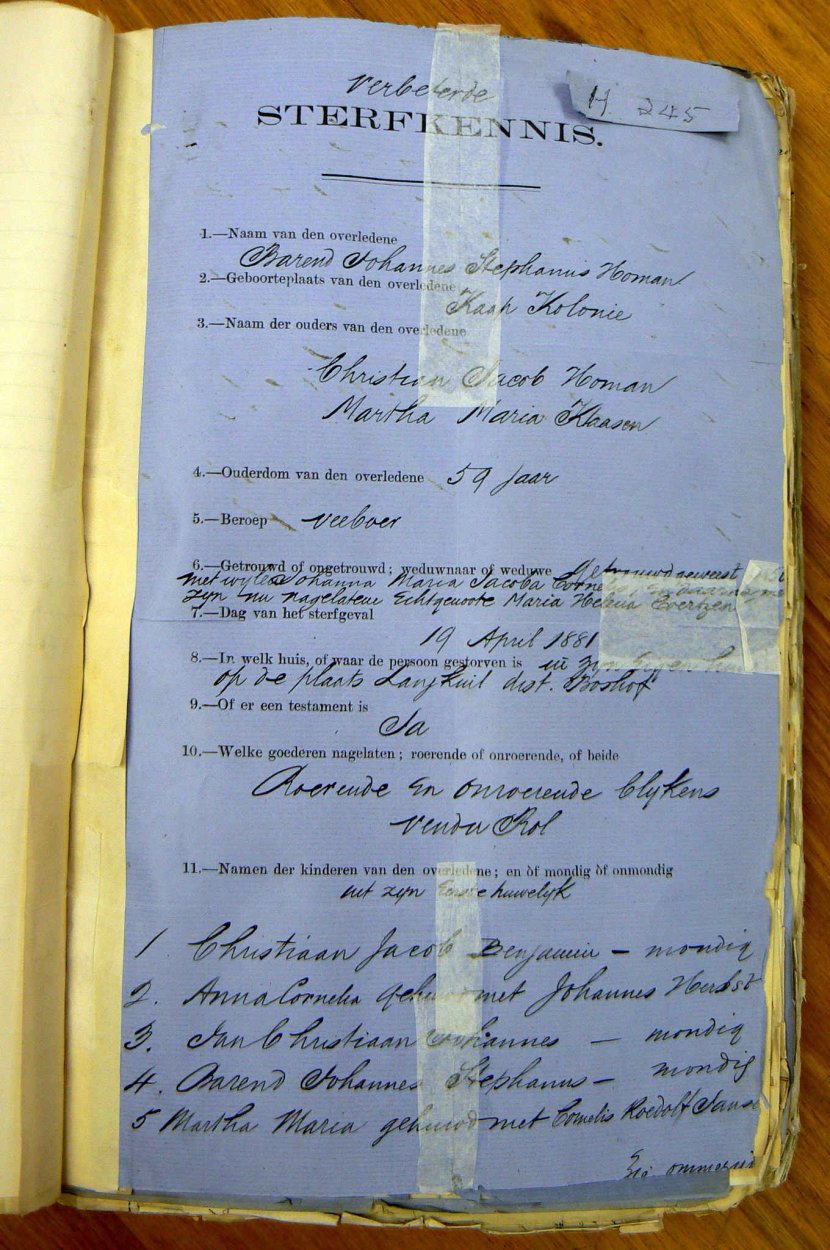 Verbeterde
H 245
STERFKENNIS.
1.—Naam van den overledene
Barend Johannes Stephanus Homan
2.—Geboorteplaats van den overledene
Kaap Kolonie
3.—Naam der ouders van den overledene
Christian Jacob Homan
Martha Maria Klaasen
4.—Ouderdom van den overledene 59 Jaar
5.—Beroep Veeboer
6.—Getrouwd of ongetrouwd; weduwnaar of weduwe getrouwd geweest
met wylen Johanna Maria Jacoba
zyn nu nagelatene Echtgenoote Maria Helena Evertzen
7.—Dag van het sterfgeval
19 April 1881
8.—In welk huis, of waar de persoon gestorven is in zyn eigen huis
op de plaats Langkuil dist. Boshof
9.—Of er een testament is
Ja
10.—Welke goederen nagelaten; roerende of onroerende, of beide
Roerende en onroerende blykens
Vendu Rol
11.—Namen der kinderen van den overledene; en òf mondig òf onmondig
uit zyn Eerste huwelyk
1 Christiaan Jacob Benjamin – mondig
2. Anna Cornelia gehuwd met Johannes Herbst
3. Jan Christiaan Johannes – mondig
4. Barend Johannes Stephanus – mondig
5 Martha Maria gehuwd met Cornelis Roedolf Janse
Zie ommezijde